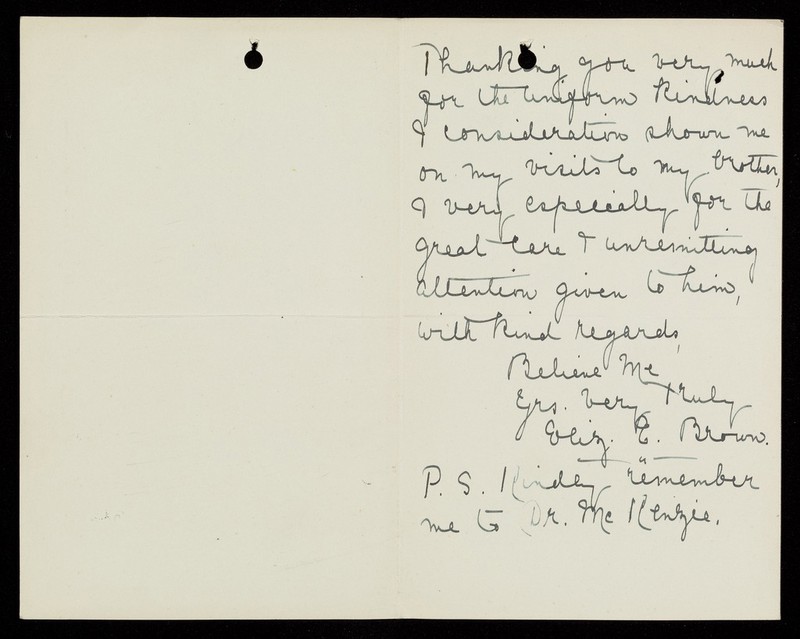 Thanking you very much
for the uniform kindness
& consideration shown me
on my visits to my brother,
& very especially for the
great care & unremitting
attention given to him,
with kind regards,
Believe Me
Yrs. very truly
Eliz. E. Brown.
P. S. Kindly remember
me to Dr. McKenzie.